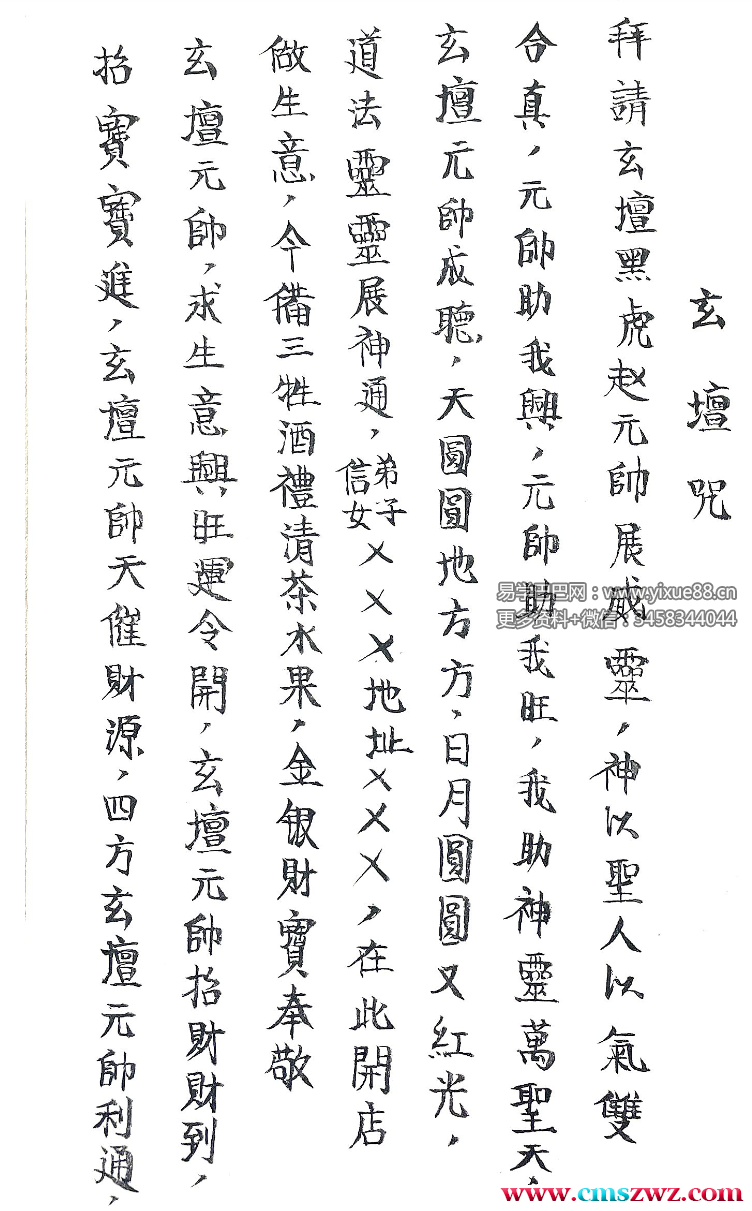 玄壇咒
拜請玄壇黑虎赵元帥展威靈，神以聖人以氣雙
合真，元帥助我興，元帥助我旺，我助神靈萬聖天，
玄壇元帥成聽，天圓圓地方方，日月圓圓又紅光，
道法靈靈展神通，弟子信女×××地址×××，在此開店
做生意，今備三牲酒禮清茶水果，金银財寶奉敬
玄壇元帥，求生意興旺運令開，玄壇元帥招財財到，
招寶寶進，玄壇元帥天催財源，四方玄壇元帥利通，
易学巴巴网：www.yixue88.cn
更多资料+微信：3458344044
www.cmszwz.com